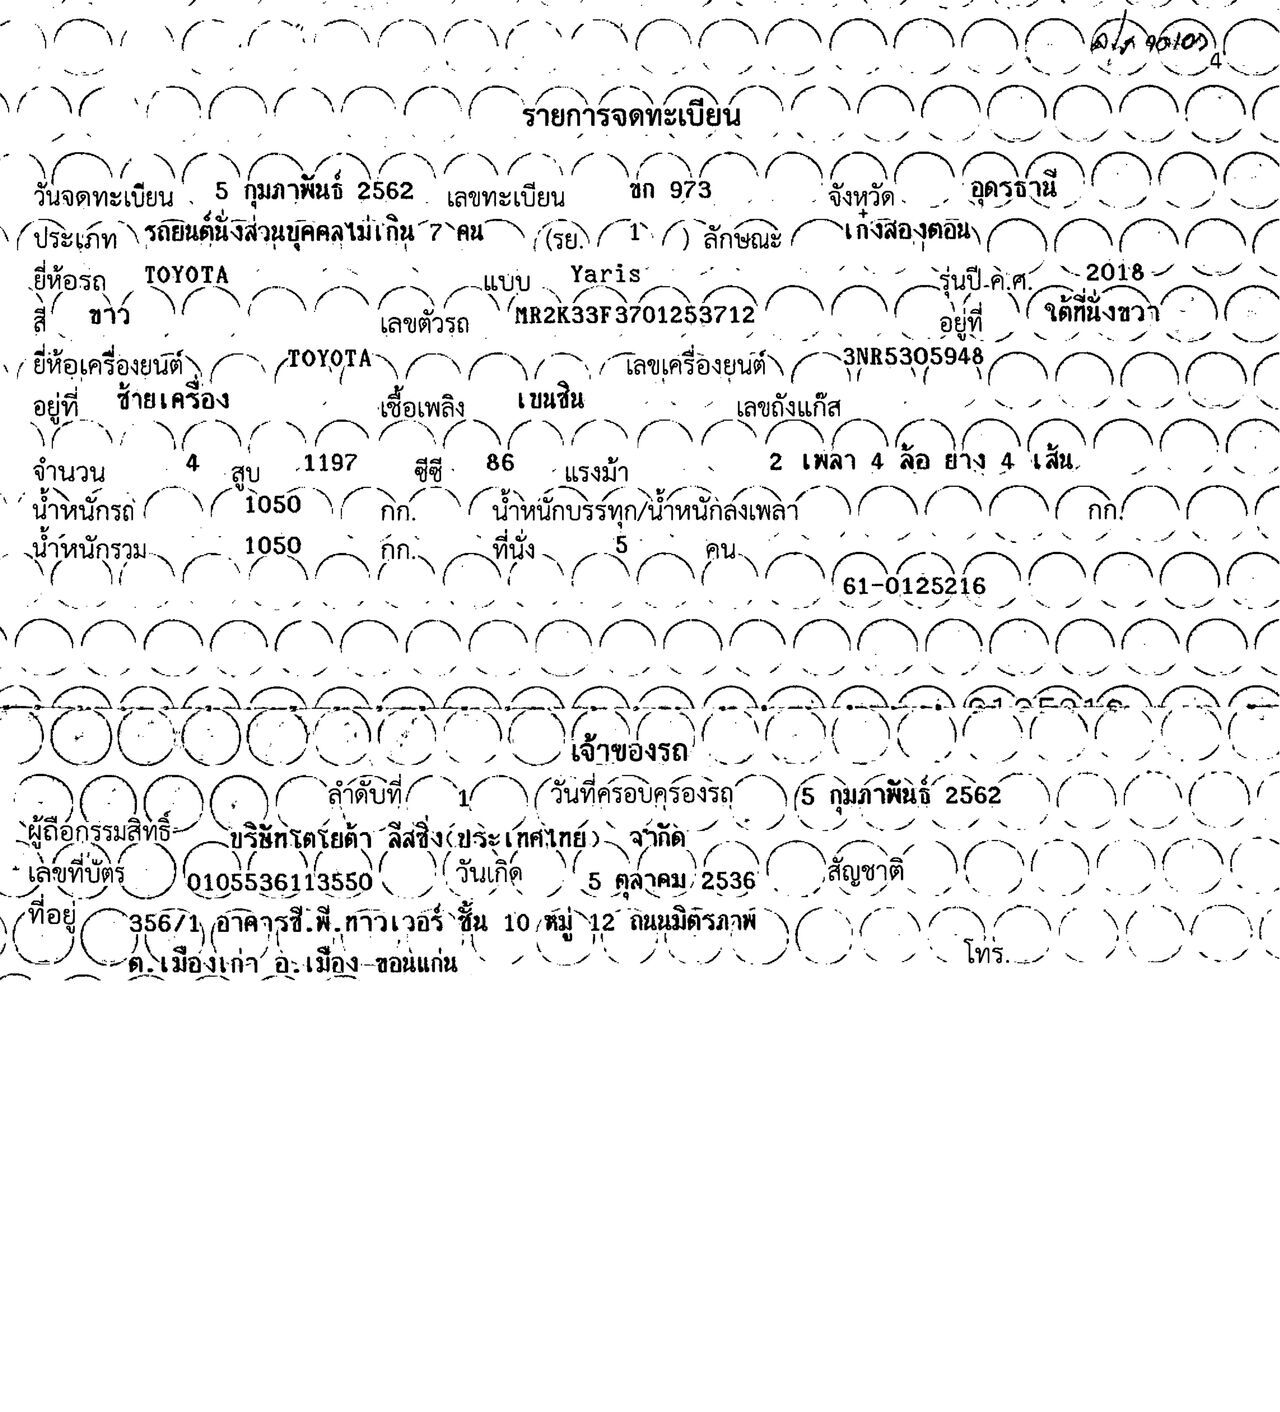 4
รายการจดทะเบียน
วันจดทะเบียน 5 กุมภาพันธ์ 2562 เลขทะเบียน ขก 973 จังหวัด อุดรธานี
ประเภท รถยนต์นั่งส่วนบุคคลไม่เกิน 7 คน (รย. 1 ) ลักษณะ เก๋งสองตอน
ยี่ห้อรถ TOYOTA แบบ Yaris รุ่นปี ค.ศ. 2018
สี ขาว เลขตัวรถ MR2K33F3701253712 อยู่ที่ ใต้ที่นั่งขวา
ยี่ห้อเครื่องยนต์ TOYOTA เลขเครื่องยนต์ 3NR5305948
อยู่ที่ ซ้ายเครื่อง เชื้อเพลิง เบนซิน เลขถังแก๊ส
จำนวน 4 สูบ 1197 ซีซี 86 แรงม้า 2 เพลา 4 ล้อ ยาง 4 เส้น
น้ำหนักรถ 1050 กก. น้ำหนักบรรทุก/น้ำหนักลงเพลา กก.
น้ำหนักรวม 1050 กก. ที่นั่ง 5 คน
61-0125216
เจ้าของรถ
ลำดับที่ 1 วันที่ครอบครองรถ 5 กุมภาพันธ์ 2562
ผู้ถือกรรมสิทธิ์ บริษัทโตโยต้า ลีสซิ่ง(ประเทศไทย) จำกัด
เลขที่บัตร 0105536113550 วันเกิด 5 ตุลาคม 2536 สัญชาติ
ที่อยู่ 356/1 อาคารซี.พี.ทาวเวอร์ ชั้น 10 หมู่ 12 ถนนมิตรภาพ
ต.เมืองเก่า อ.เมือง ขอนแก่น โทร.